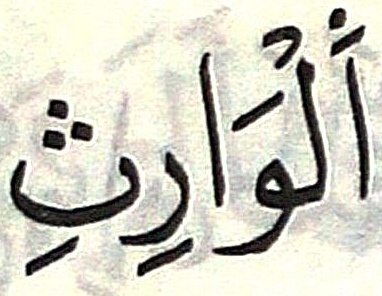 اَلْوَارِثِ